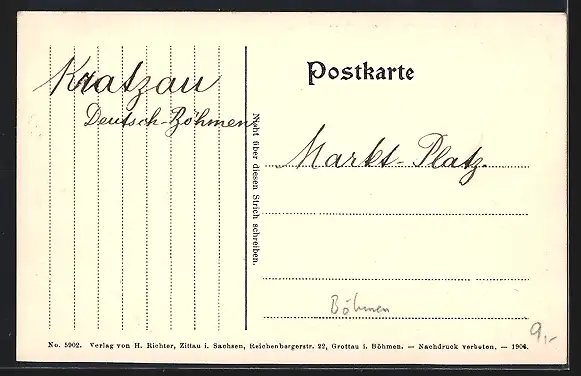 Kratzau
Deutsch-Böhmen
Postkarte
Nicht über diesen Strich schreiben.
Markt-Platz.
Böhmen
9,-
No. 5902. Verlag von H. Richter, Zittau i. Sachsen, Reichenbergerstr. 22, Grottau i. Böhmen. — Nachdruck verboten. — 1904.